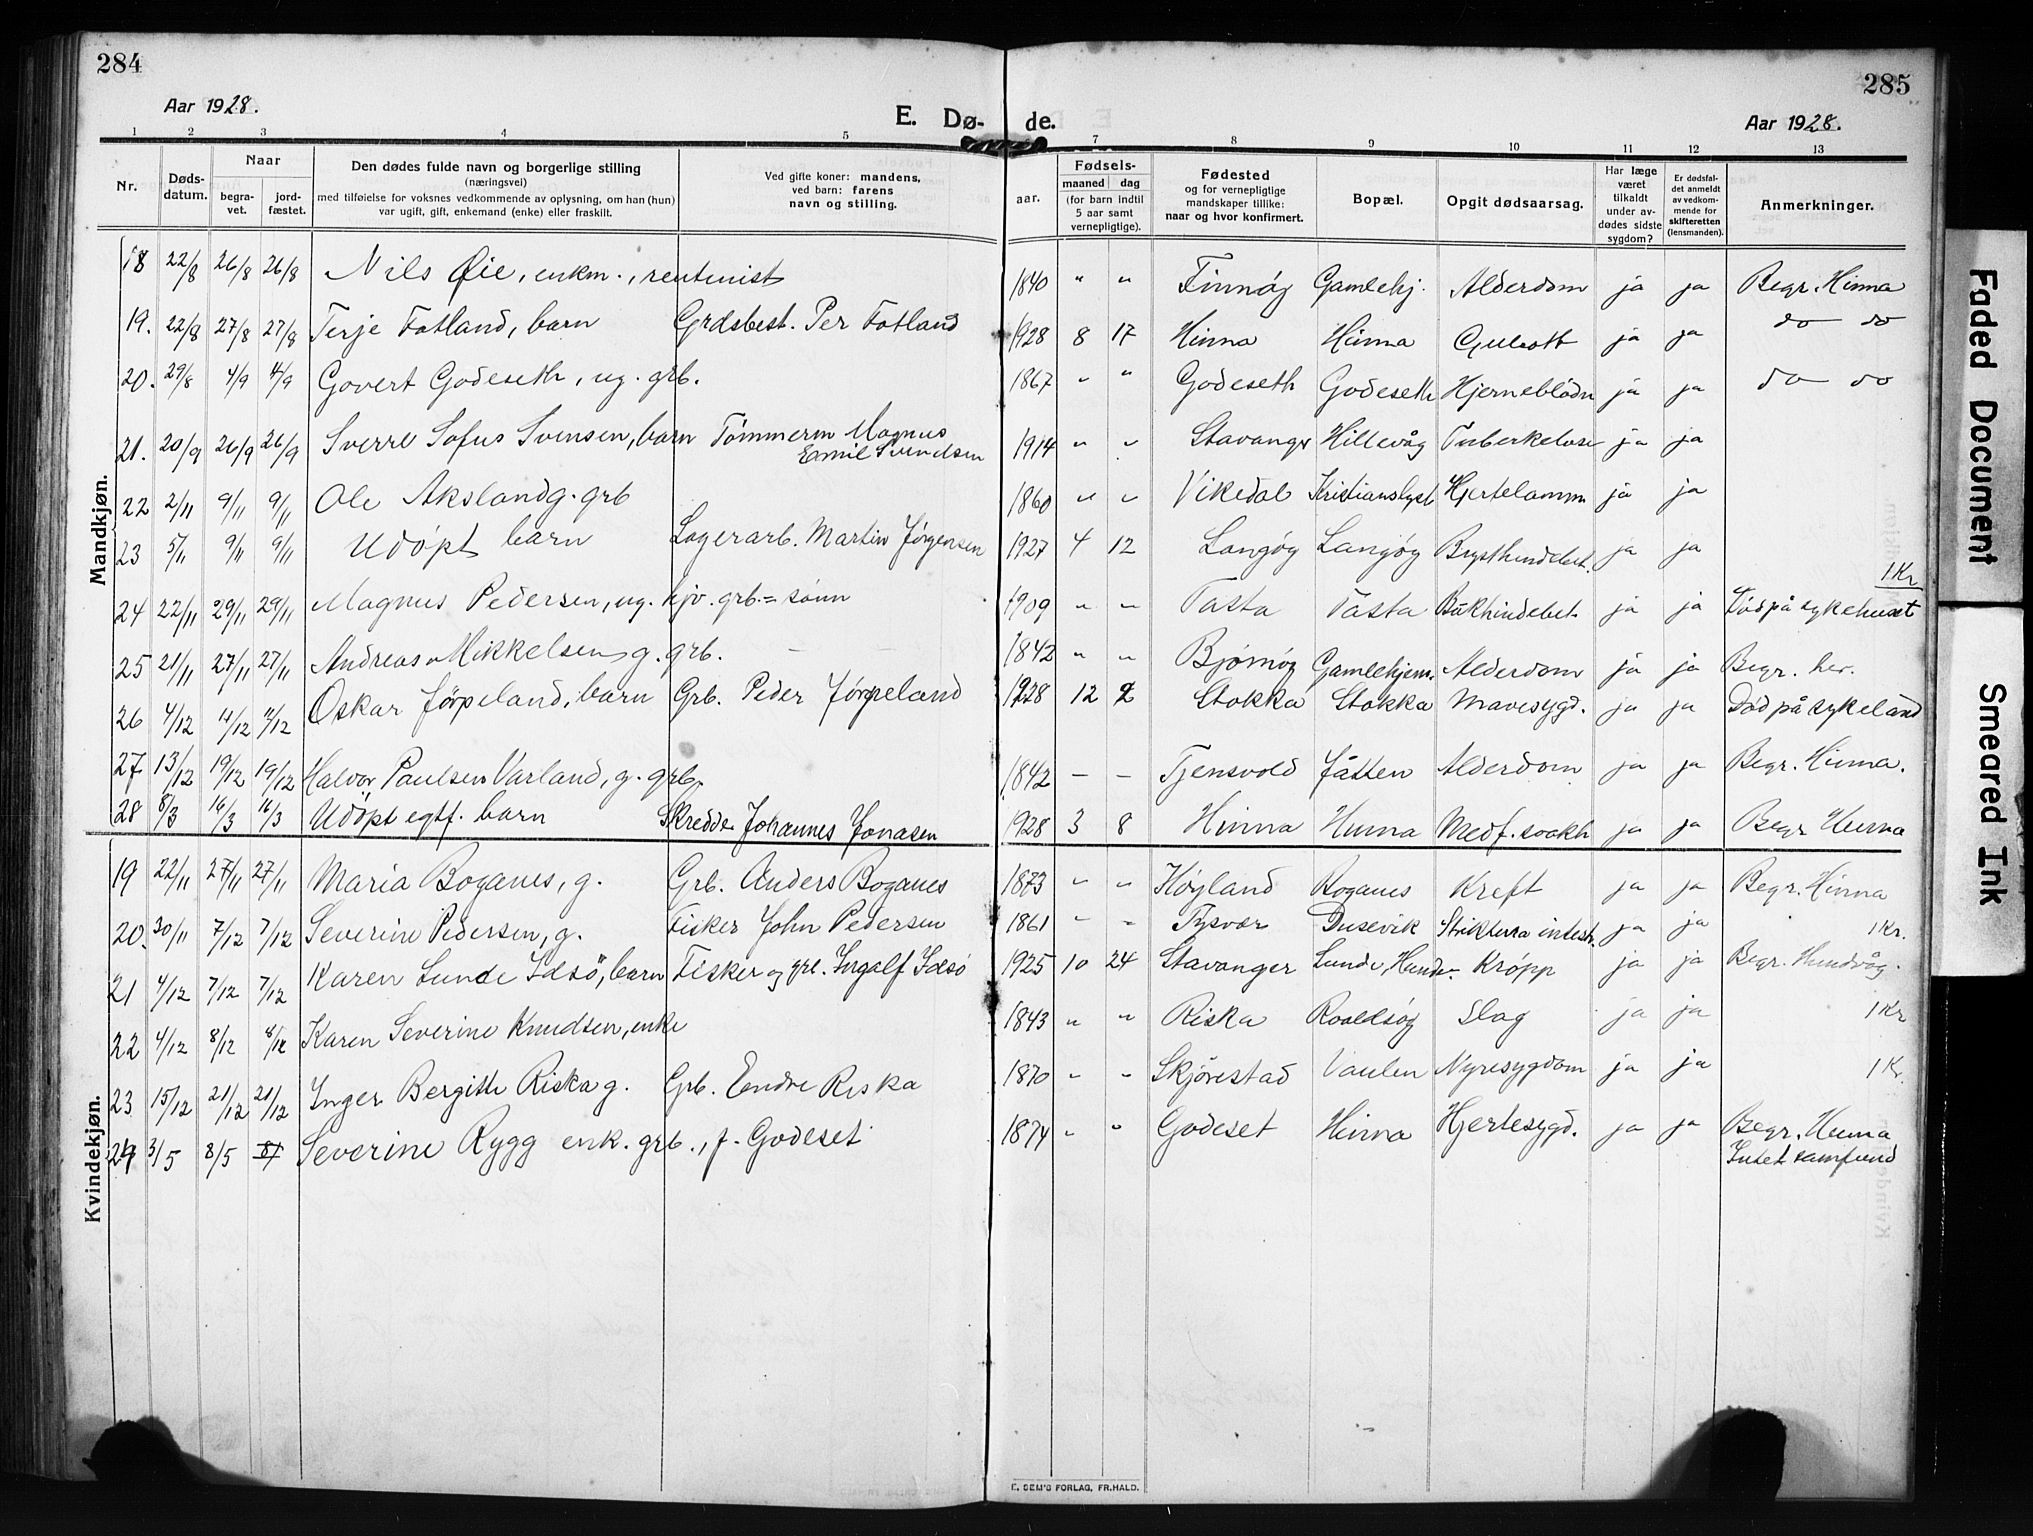 284
285
Aar 1928.
E. Dø- de.
Aar 1928.
1 2 3 4 5 7 8 9 10 11 12 13
Nr.
Døds-
datum.
Naar
begra-
vet.
jord-
fæstet.
Den dødes fulde navn og borgerlige stilling
(næringsvei)
med tilføielse for voksnes vedkommende av oplysning, om han (hun)
var ugift, gift, enkemand (enke) eller fraskilt.
Ved gifte koner: mandens,
ved barn: farens
navn og stilling.
Fødsels-
aar.
maaned
dag
(for barn indtil
5 aar samt
vernepligtige).
Fødested
og for vernepligtige
mandskaper tillike:
naar og hvor konfirmert.
Bopæl.
Opgit dødsaarsag.
Har læge
været
tilkaldt
under av-
dødes sidste
sygdom?
Er dødsfal-
det anmeldt
av vedkom-
mende for
skifteretten
(lensmanden).
Anmerkninger.
Mandkjøn.
18 22/8 26/8 26/8 Nils Øie, enkm., rentenist 1840 " " Finnøy Gamlehj. Alderdom ja ja Begr. Hinna
19. 22/8 27/8 27/8 Terje Fotland, barn Grdsbest. Per Fotland 1928 8 17 Hinna Hinna Gulsott ja ja do do
20. 29/8 4/9 4/9 Govert Godeseth, ug. grb. 1867 " " Godeseth Godeseth Hjerneblødn ja ja do do
21. 20/9 26/9 26/9 Sverre Sofus Svensen, barn Tømmerm Magnus
Emil Svendsen 1914 " " Stavanger Hillevåg Tuberkelose ja ja
22 2/11 9/11 9/11 Ole Aksland g. grb 1860 " " Vikedal Kristianslyst Hjertelamm ja ja
23 5/11 9/11 9/11 Udøpt barn Lagerarb. Martin Jørgensen 1927 4 12 Langøy Langøy Brysthindebet. ja ja
1 Kr
24 22/11 29/11 29/11 Magnus Pedersen, ug. hjv. grb. = sønn 1909 " " Tasta Tasta Bukhindebet ja ja Død på sykehuset
25 21/11 27/11 27/11 Andreas Mikkelsen g. grb. 1842 " " Gamlehjem. Alderdom ja ja Begr. her.
26 4/12 11/12 11/12 Oskar Jørpeland, barn Grb. Peder Jørpeland 1928 12 2 Stokka Stokka Mavesygd. ja ja Død på sykeland
27 13/12 19/12 19/12 Halvor Paulsen Varland, g. grb. 1842 - - Tjensvold Jåtten Alderdom ja ja Begr. Hinna.
28 8/3 16/3 16/3 Udøpt egtf. barn Skredder Johannes Jonasen 1928 3 8 Hinna Hinna Medf. svakh ja ja Begr Hinna
Kvindekjøn.
19 22/11 27/11 27/11 Maria Boganes, g. Grb. Anders Boganes 1873 " " Høyland Boganes Kreft ja ja Begr. Hinna
20. 30/11 7/12 7/12 Severine Pedersen, g. Fisker John Pedersen 1861 - - Tysvær Dusevik Striktura intest. ja ja 1 Kr.
21 4/12 7/12 7/12 Karen Lunde Idsö, barn Fisker og grb. Ingalf Idsö 1925 10 24 Stavanger Lunde, Hundv. Krøpp ja ja Begr. Hundvåg.
22 4/12 8/12 8/12 Karen Severine Knudsen, enke 1843 " " Riska Roaldsøy Slag ja ja 1 Kr
23 15/12 21/12 21/12 Inger Bergitte Riska g. Grb. Endre Riska 1870 " " Skjørestad Vaulen Nyresygdom ja ja 1 Kr.
24 3/5 8/5 Severine Rygg enk. grb., f. Godeset 1874 " " Godeset Hinna Hjertesygd. ja ja Begr. Hinna
Intet samfund
E. SEM'S FORLAG, FR.HALD.
Faded Document
Smeared Ink